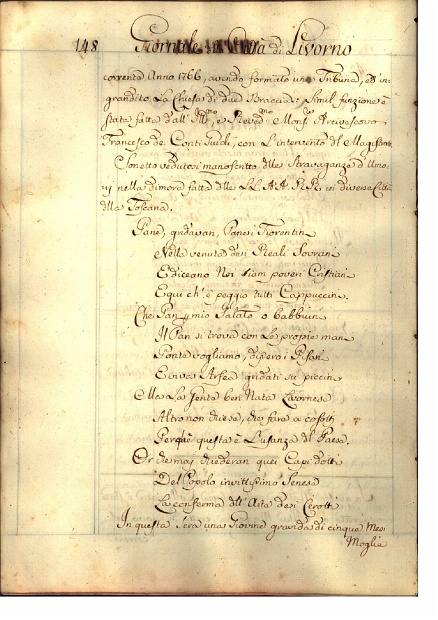 148 Giornale della Città di Livorno
corrente Anno 1766, avendo formato una Tribuna, ed in
grandito La Chiesa di due Braccia: Simil funzione è
stata fatta dall' Ill.mo, e Rev.mo Mons.r Arcivescovo
Francesco de Conti Guidi, con L'intervento del Magistrato
Sonetto vedutosi manoscritto delle Stravaganze d'Umo
ri nella dimora fatta delle LL. AA. RR. in diverse Città
della Toscana.
Pane, gridavan, Pane i Fiorentini
Nella venuta dei Reali Sovrani
E diceano Noi siam poveri Cristiani
E qui ch' è peggio tutti Cappuccini.
Che Pan mio Palato o babbuini
Il Pan si trova con Le proprie mani
Ponte vogliamo, dissero i Pisani
E viva Alfea gridati su piccini
Ma La Gente ben Nata Livornese
Altro non diceva, che fara a cofolti
Perchè questa è L'usanza del Paese.
Or che mai diederan quei Capi dotti
Del Popolo invittissimo Senese
La conferma dell' Arte dei Cerotti
In questa sera una Giovine gravida di cinque Mesi
Moglie